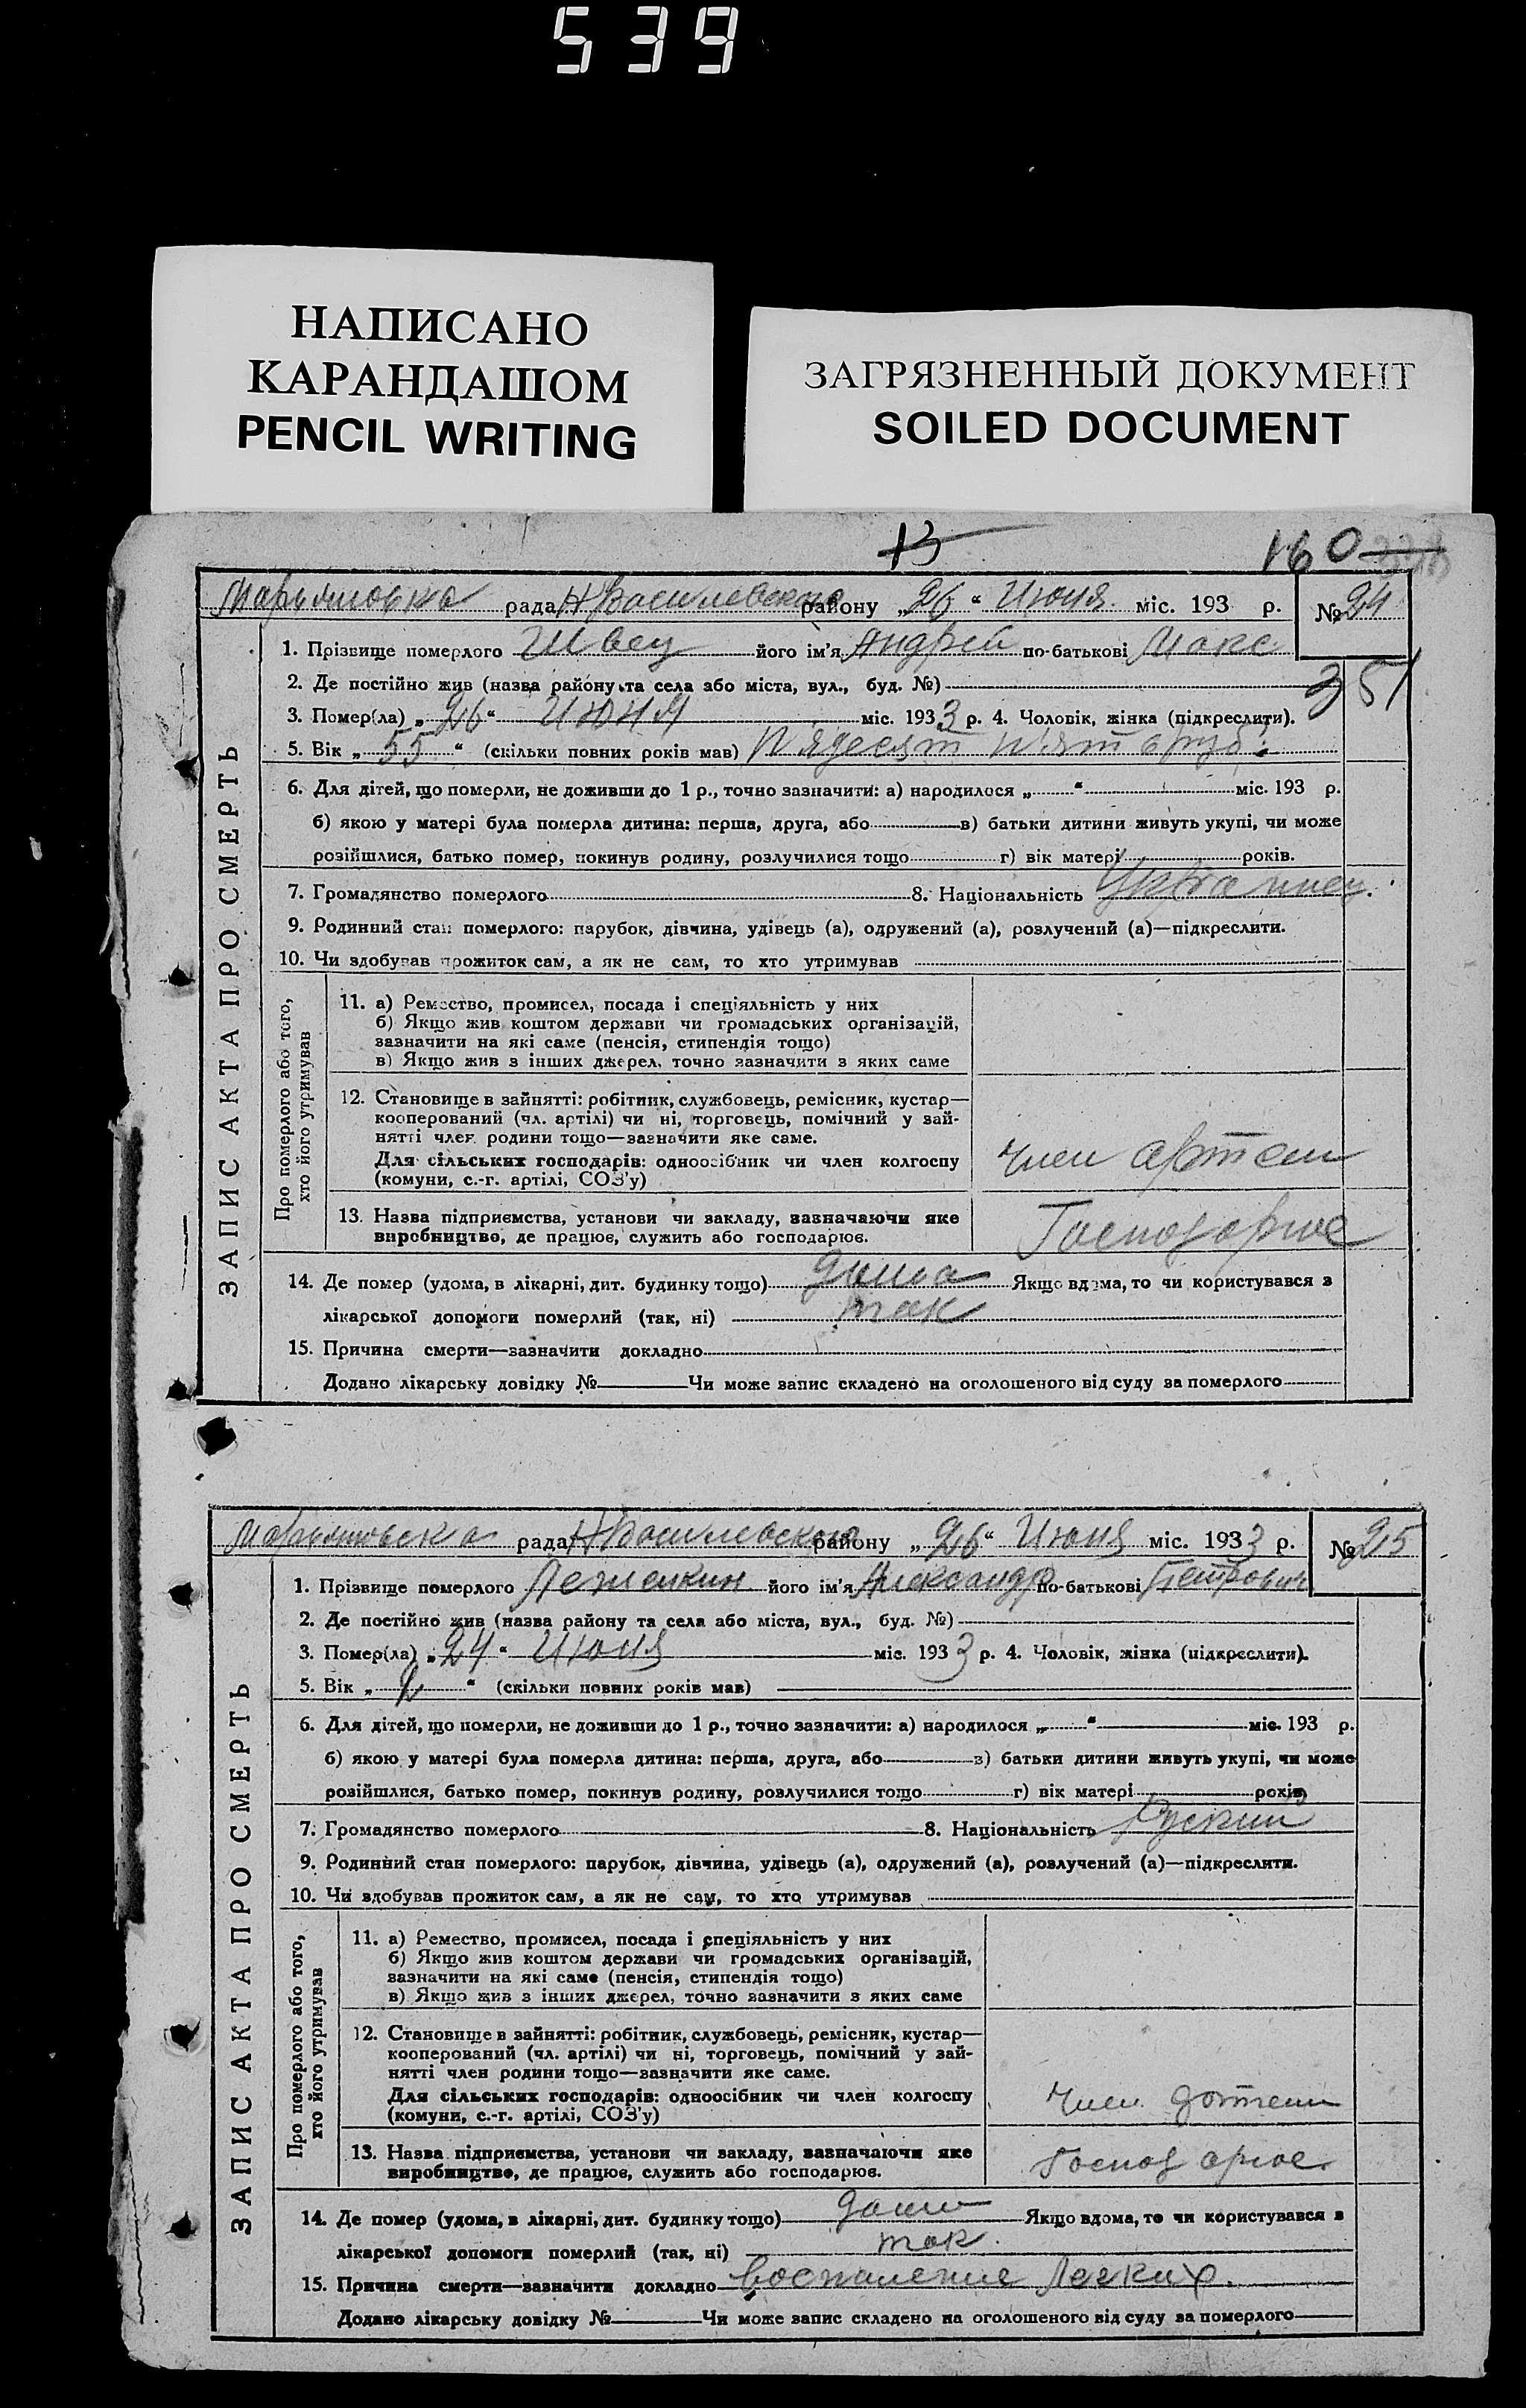 539
НАПИСАНО
КАРАНДАШОМ
PENCIL WRITING
ЗАГРЯЗНЕННЫЙ ДОКУМЕНТ
SOILED DOCUMENT
13
160
Марьяновка рада НВасилевского району „26“ Июня міс. 193 р. № 24
1. Прізвище померлого Швец його ім'я Андрей по-батькові Макс
2. Де постійно жив (назва району та села або міста, вул., буд. №)
351
3. Помер(ла) „26“ Июня міс. 1933 р. 4. Чоловік, жінка (підкреслити).
5. Вік „55“ (скільки повних років мав) П'ядесят п'ять
6. Для дітей, що померли, не доживши до 1 р., точно зазначити: а) народилося „ “ міс. 193 р.
б) якою у матері була померла дитина: перша, друга, або в) батьки дитини живуть укупі, чи може
розійшлися, батько помер, покинув родину, розлучилися тощо г) вік матері років.
7. Громадянство померлого 8. Національність Украинец.
9. Родинний стан померлого: парубок, дівчина, удівець (а), одружений (а), розлучений (а)—підкреслити.
10. Чи здобував прожиток сам, а як не сам, то хто утримував
ЗАПИС АКТА ПРО СМЕРТЬ
Про померлого або того,
хто його утримував
11. а) Ремество, промисел, посада і спеціяльність у них
б) Якщо жив коштом держави чи громадських організацій,
зазначити на які саме (пенсія, стипендія тощо)
в) Якщо жив з інших джерел, точно зазначити з яких саме
12. Становище в зайнятті: робітник, службовець, ремісник, кустар—
кооперований (чл. артілі) чи ні, торговець, помічний у зай-
нятті член родини тощо—зазначити яке саме.
Для сільських господарів: одноосібник чи член колгоспу
(комуни, с.-г. артілі, СОЗ'у)
Член артели
13. Назва підприємства, установи чи закладу, зазначаючи яке
виробництво, де працює, служить або господарює.
Господарюе
14. Де помер (удома, в лікарні, дит. будинку тощо) дома Якщо вдома, то чи користувався з
лікарської допомоги померлий (так, ні) так
15. Причина смерти—зазначити докладно
Додано лікарську довідку № Чи може запис складено на оголошеного від суду за померлого
Марьяновска рада НВасилевского району „26“ Июня міс. 1933 р. № 25
1. Прізвище померлого Лежекин його ім'я Александр по-батькові Петрович
2. Де постійно жив (назва району та села або міста, вул., буд. №)
3. Помер(ла) „24“ Июня міс. 1933 р. 4. Чоловік, жінка (підкреслити).
5. Вік „ “ (скільки повних років мав)
6. Для дітей, що померли, не доживши до 1 р., точно зазначити: а) народилося „ “ міс. 193 р.
б) якою у матері була померла дитина: перша, друга, або в) батьки дитини живуть укупі, чи може
розійшлися, батько помер, покинув родину, розлучилися тощо г) вік матері років
7. Громадянство померлого 8. Національність Руский
9. Родинний стан померлого: парубок, дівчина, удівець (а), одружений (а), розлучений (а)—підкреслити.
10. Чи здобував прожиток сам, а як не сам, то хто утримував
ЗАПИС АКТА ПРО СМЕРТЬ
Про померлого або того,
хто його утримував
11. а) Ремество, промисел, посада і спеціяльність у них
б) Якщо жив коштом держави чи громадських організацій,
зазначити на які саме (пенсія, стипендія тощо)
в) Якщо жив з інших джерел, точно зазначити з яких саме
12. Становище в зайнятті: робітник, службовець, ремісник, кустар—
кооперований (чл. артілі) чи ні, торговець, помічний у зай-
нятті член родини тощо—зазначити яке саме.
Для сільських господарів: одноосібник чи член колгоспу
(комуни, с.-г. артілі, СОЗ'у)
Член артели
13. Назва підприємства, установи чи закладу, зазначаючи яке
виробництво, де працює, служить або господарює.
Господарюе
14. Де помер (удома, в лікарні, дит. будинку тощо) дома Якщо вдома, то чи користувався з
лікарської допомоги померлий (так, ні) так
15. Причина смерти—зазначити докладно воспаление легких.
Додано лікарську довідку № Чи може запис складено на оголошеного від суду за померлого